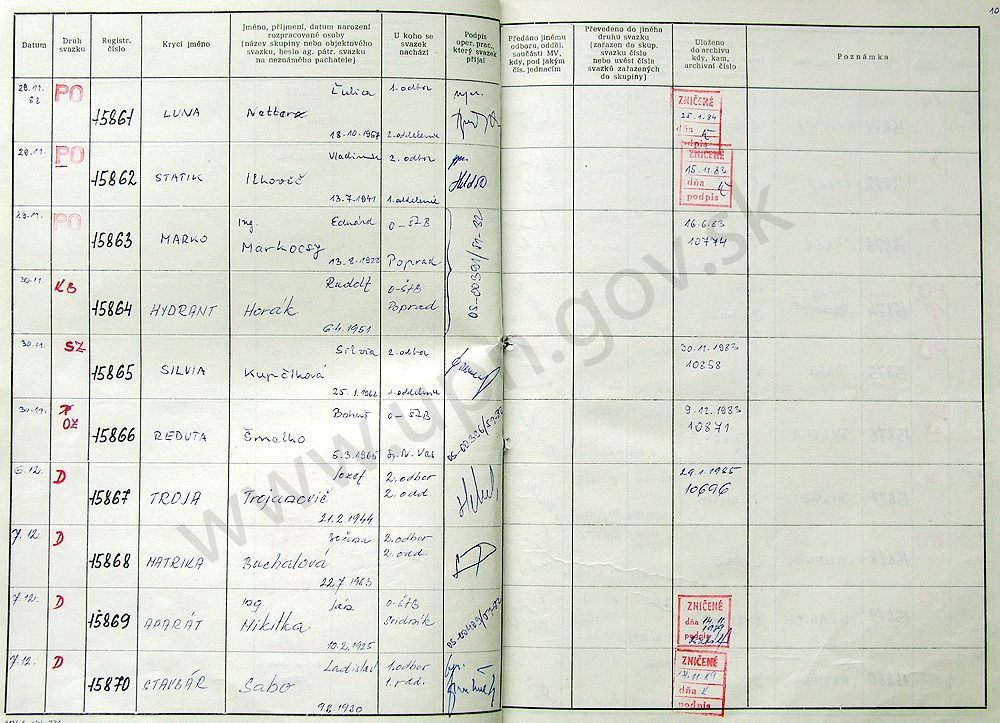 10
Datum
Druh svazku
Registr. číslo
Krycí jméno
Jméno, příjmení, datum narození rozpracované osoby
(název skupiny nebo objektového svazku, heslo ag. pátr. svazku na neznámého pachatele)
U koho se svazek nachází
Podpis oper. prac., který svazek přijal
Předáno jinému odboru, odděl. součásti MV, kdy, pod jakým čís. jednacím
Převedeno do jiného druhu svazku (zařazen do skup. svazku číslo nebo uvést čísla svazků zařazených do skupiny)
Uloženo do archivu kdy, kam, archivní číslo
Poznámka
29.11. 82 PO 15861 LUNA
18.10.1967 1. odbor 2. oddelenie
ZNIČENÉ
dňa
podpis
29.11. PO 15862 STATIK Vladimír Ilkovič
13.7.1941 2. odbor 1. oddelenie
ZNIČENÉ
15.11.83
dňa
podpis
29.11. PO 15863 MARKO Ing. Eduárd Markocsy
O-ŠZB Poprad
16.6.83
10774
30.11. KB 15864 HYDRANT Rudolf Horák
6.4.1951 O-ŠTB Poprad
30.11. SZ 15865 SILVIA Silvia Kupčíková
2. odbor 1. oddelenie
30.11.1983
10858
30.11. OZ 15866 REDUTA Bohuš Šmelko
5.3.1965 O-ŠZB Sp. N. Ves
9.12.1983
10871
6.12. D 15867 TROJA Jozef Trojanovič
21.2.1944 2. odbor 2. odd.
10696
7.12. D 15868 MATRIKA Buchalová
22.7.1963 2. odbor 2. odd.
7.12. D 15869 APARÁT Ing. Ján Mikitka
10.2.1925 O-ŠTB Svidník
ZNIČENÉ
dňa 14.11. 1989
podpis
7.12. D 15870 STAVBÁR Ladislav Sabo
9.8.1930 1. odbor 1. odd.
ZNIČENÉ
dňa
podpis
www.upn.gov.sk